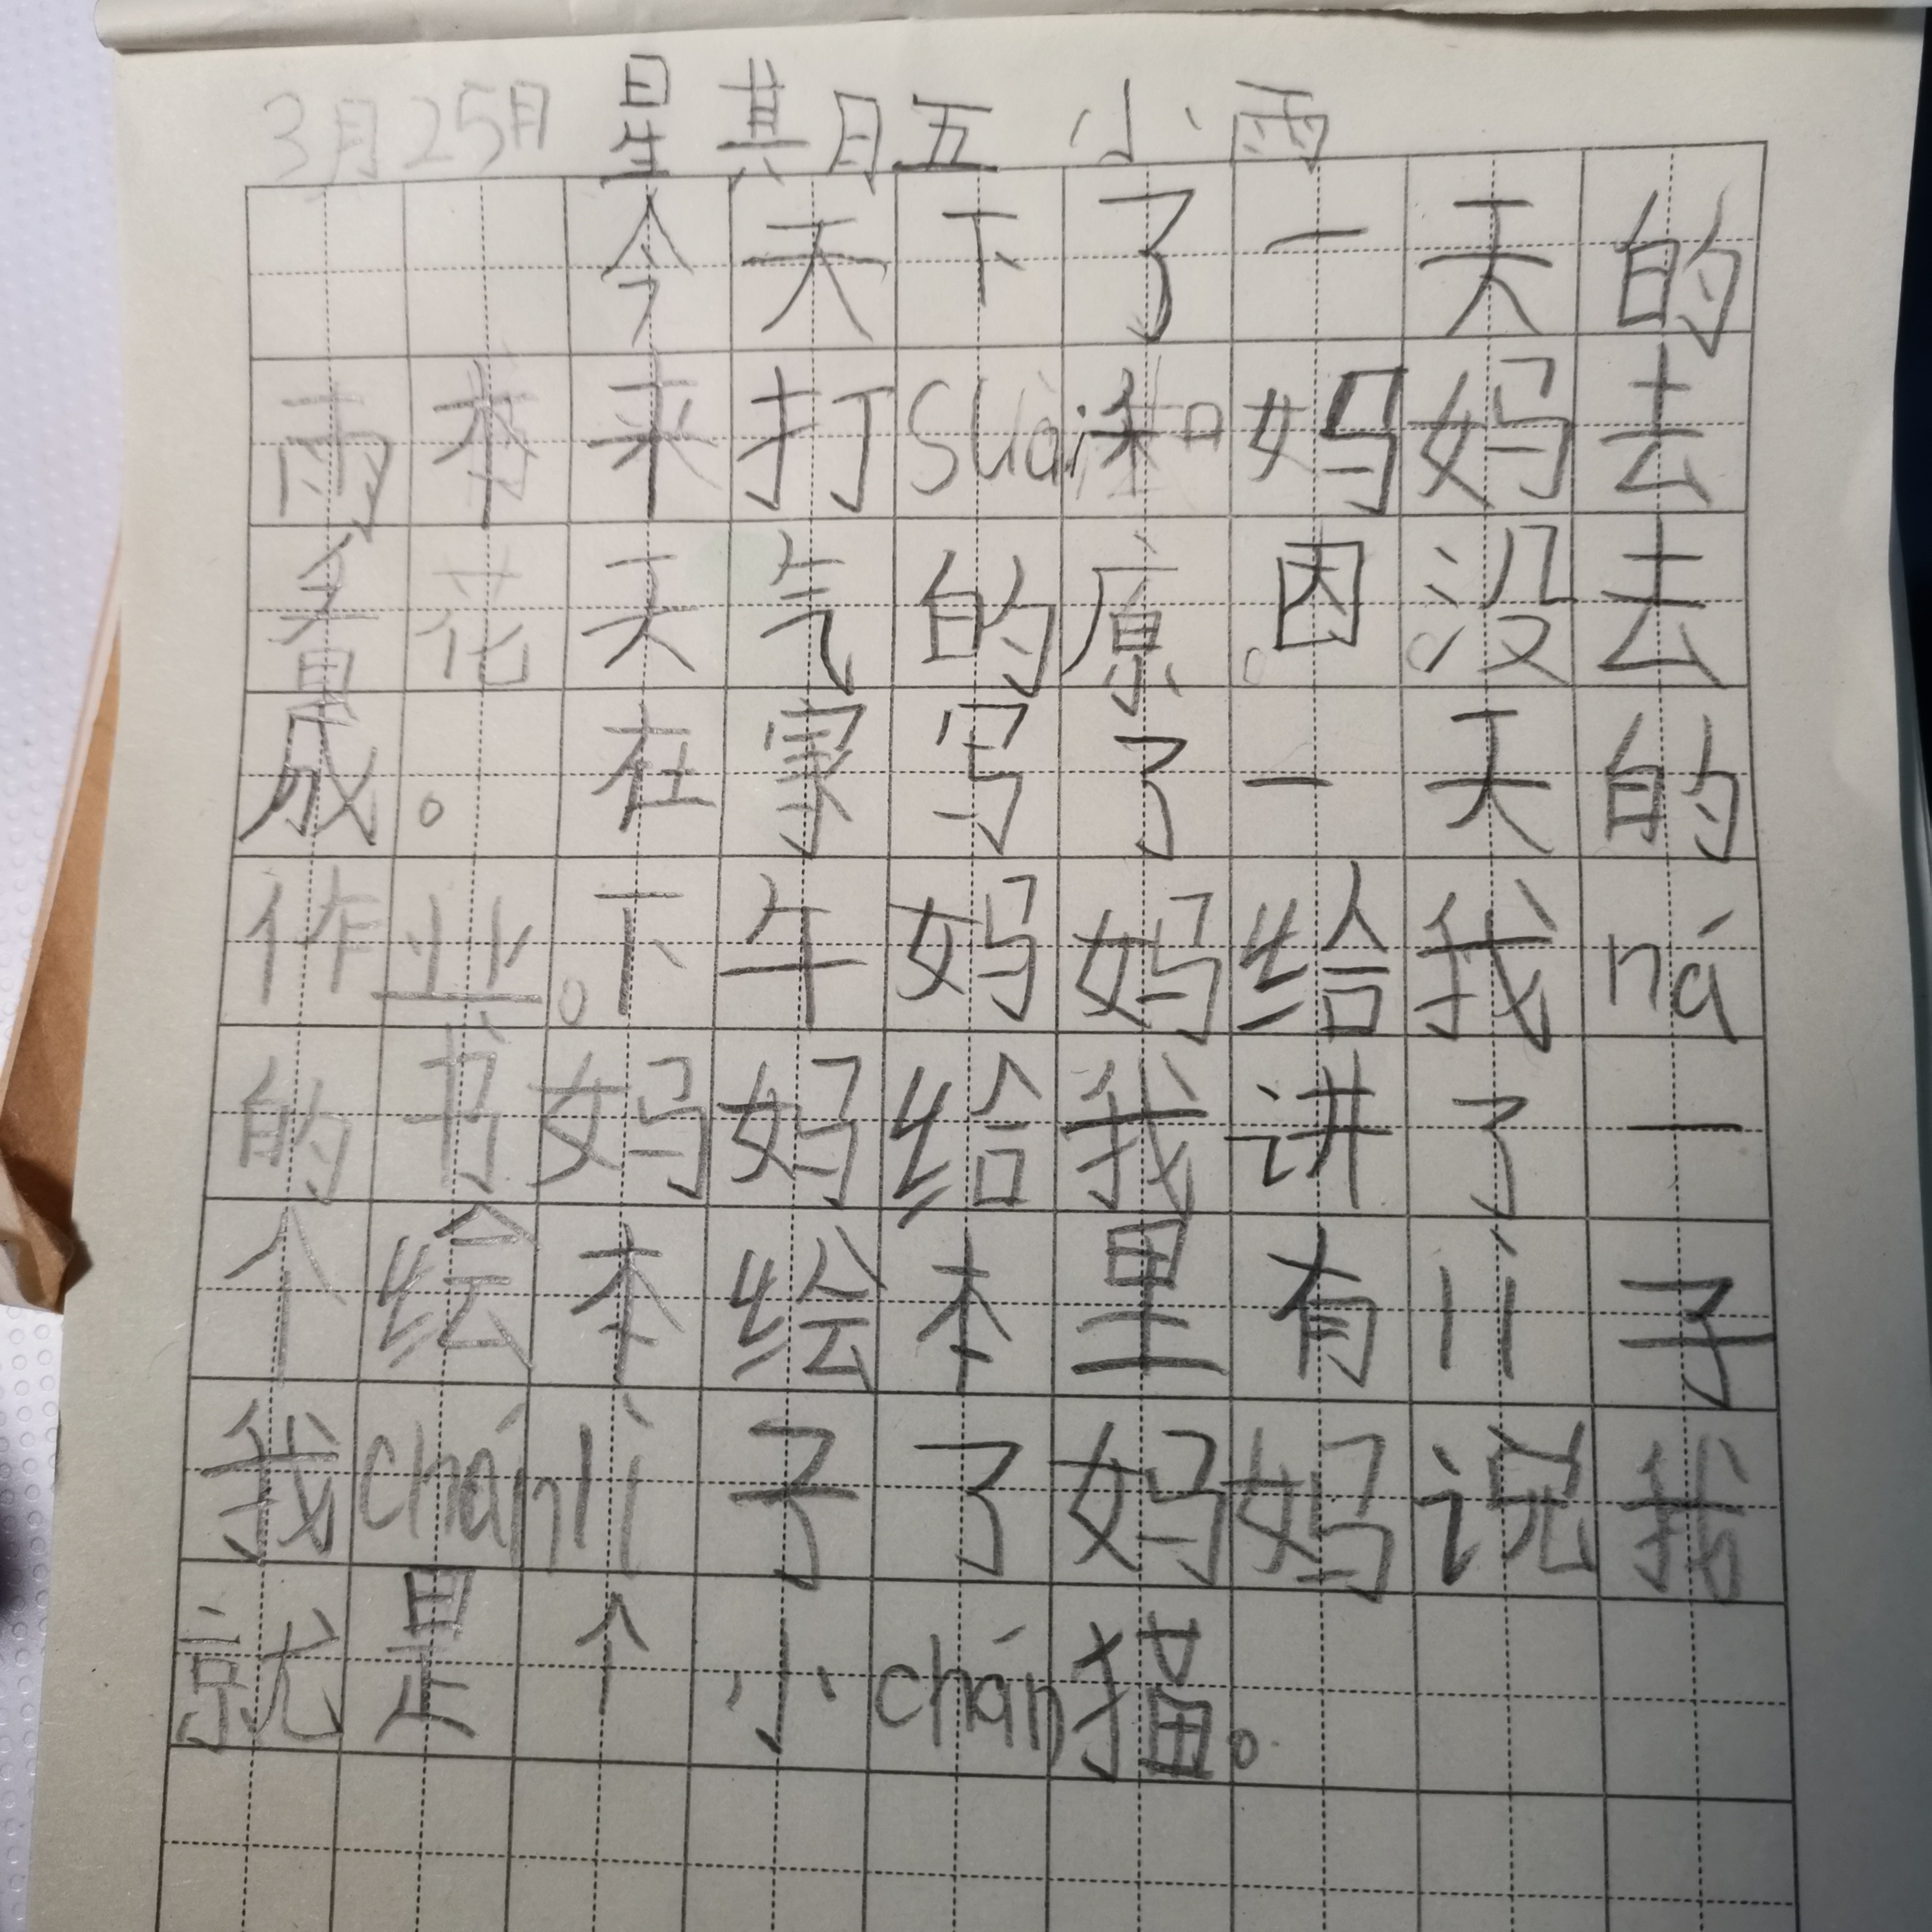 3月25日 星期五 小雨
今天下了一天的
雨本来打suài和妈妈去
看花天气的原因。没去
成。在家写了一天的
作业。下午妈妈给我ná
的书妈妈给我讲了一
个绘本绘本里有lì子
我chánlì子了妈妈说我
就是个小chán猫。